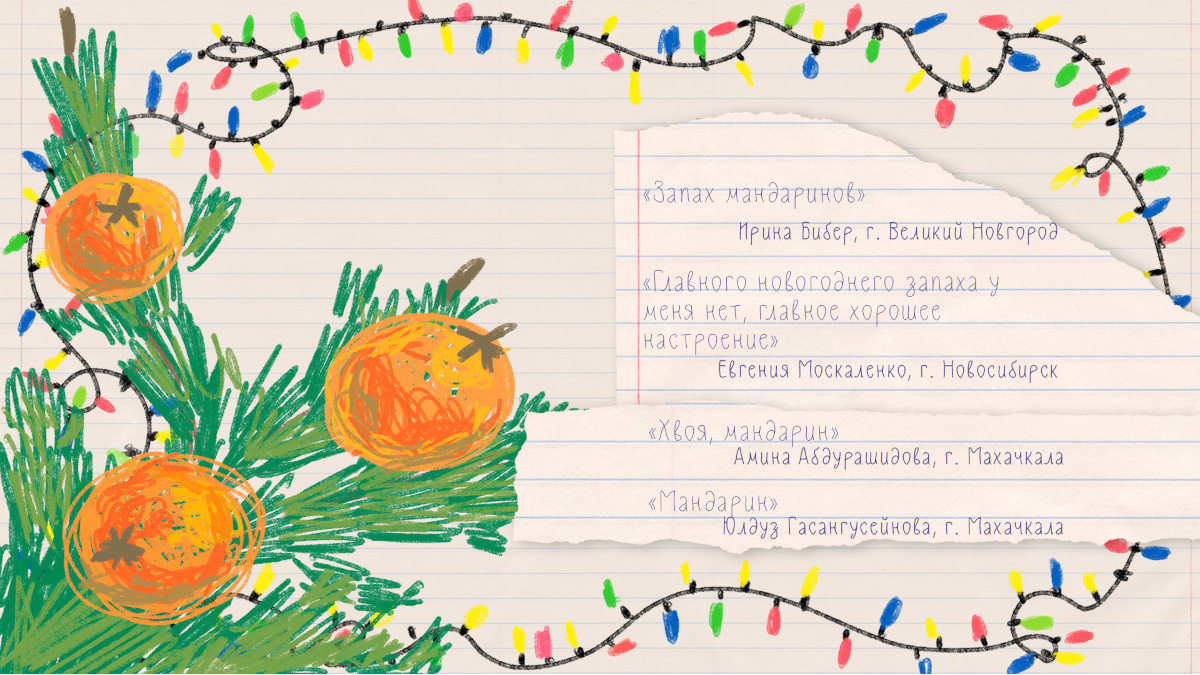 «Запах мандаринов»
Ирина Бибер, г. Великий Новгород
«Главного новогоднего запаха у
меня нет, главное хорошее
настроение»
Евгения Москаленко, г. Новосибирск
«Хвоя, мандарин»
Амина Абдурашидова, г. Махачкала
«Мандарин»
Юлдуз Гасангусейнова, г. Махачкала